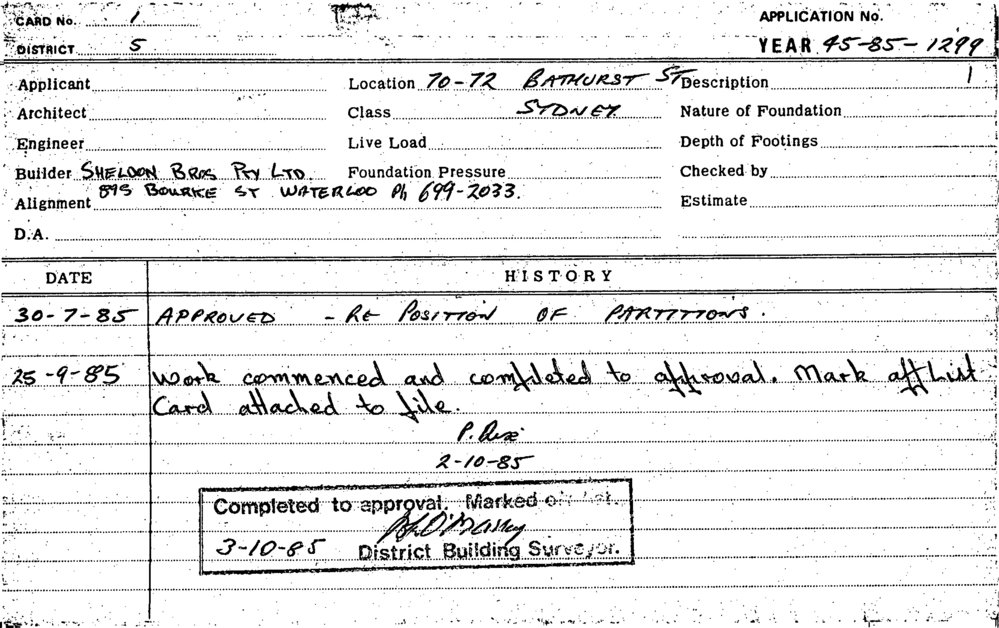 CARD No. 1
APPLICATION No.
DISTRICT 5
YEAR 45-85-1299
Applicant
Location 70-72 BATHURST ST
Description 1
Architect
Class SYDNEY
Nature of Foundation
Engineer
Live Load
Depth of Footings
Builder SHELDON BROS PTY LTD.
Foundation Pressure
Checked by
895 BOURKE ST WATERLOO Ph 699-2033.
Alignment
Estimate
D.A.
DATE
HISTORY
30-7-85 APPROVED - RE POSITION OF PARTITIONS.
25-9-85 Work commenced and completed to approval. Mark off List
Card attached to file.
P.
2-10-85
Completed to approval. Marked off List.
3-10-85 District Building Surveyor.